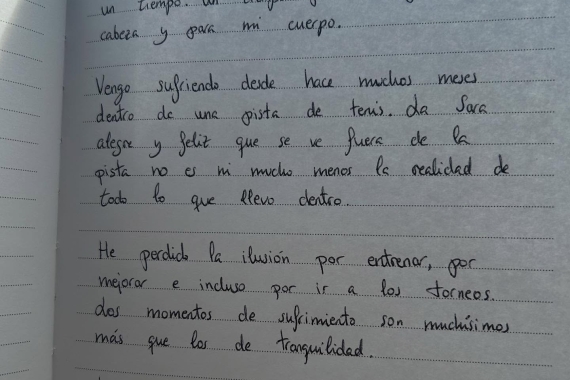 un tiempo. un
cabeza y para mi cuerpo.
Vengo sufriendo desde hace muchos meses
dentro de una pista de tenis. La Sara
alegre y feliz que se ve fuera de la
pista no es ni mucho menos la realidad de
todo lo que llevo dentro.
He perdido la ilusión por entrenar, por
mejorar e incluso por ir a los torneos.
Los momentos de sufrimiento son muchísimos
más que los de tranquilidad.